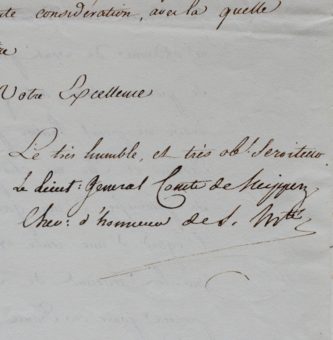 te considération, avec la quelle
re
Votre Excellence
Le très humble, et très obt. Serviteur
Le Lieut: General Comte de Neipperg
Chev: d'honneur de S. Mté.